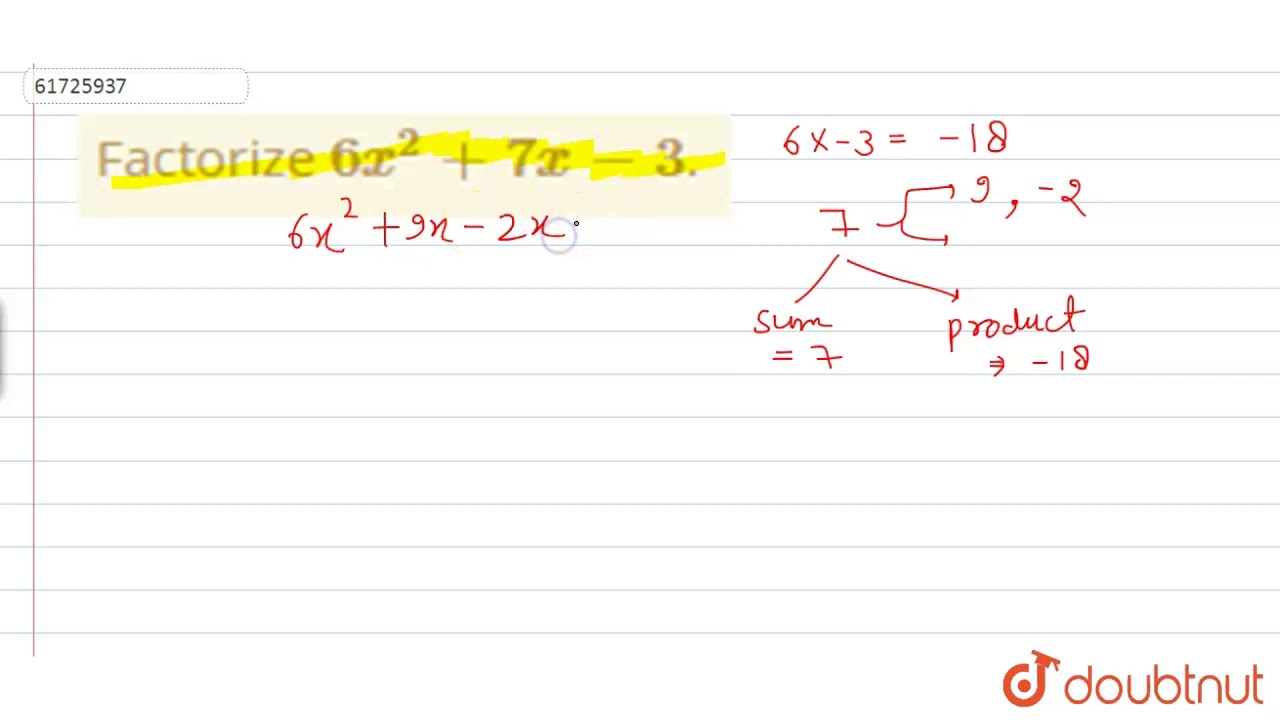 61725937
Factorize 6x² + 7x − 3.
6x² + 9x − 2x
6 x − 3 = − 18
7 → 9 , − 2
sum
= 7
product
⇒ − 18
doubtnut